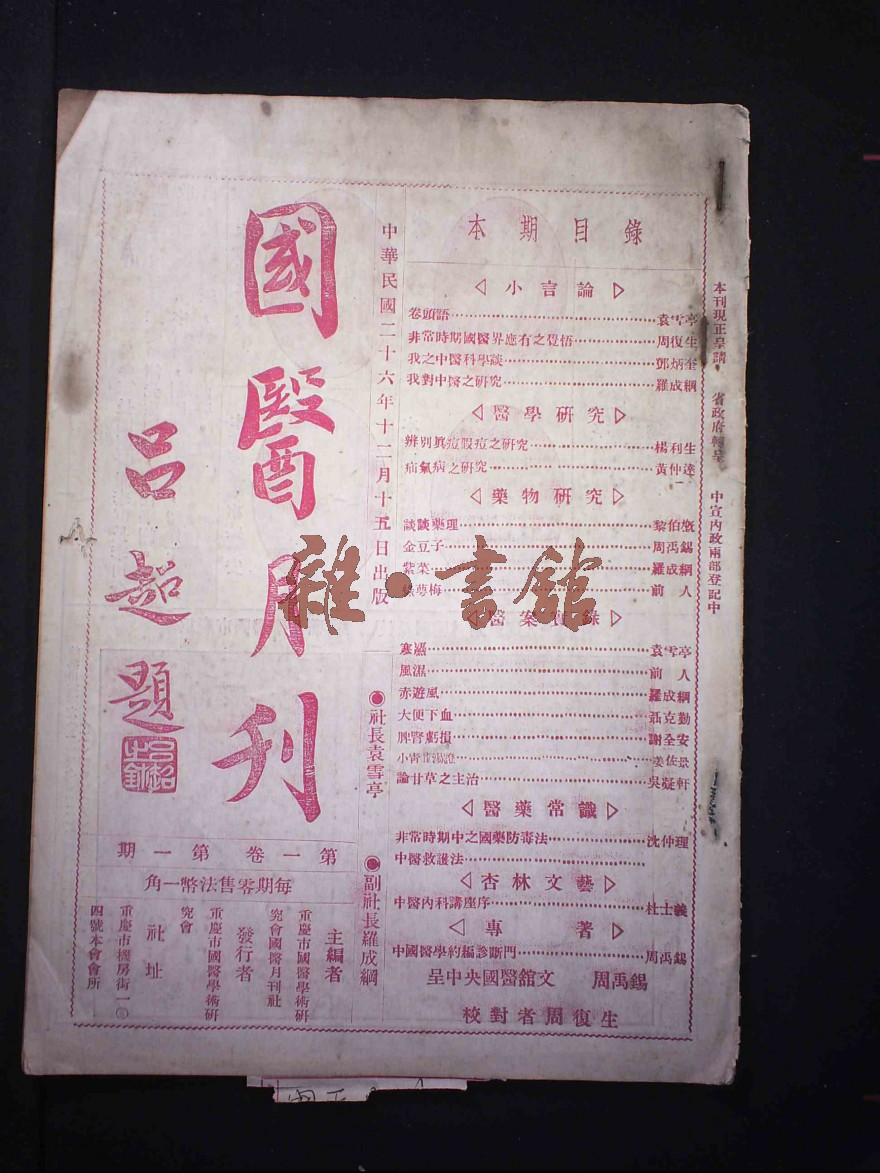 本刊現正呈請 省政府轉呈 中宣內政兩部登記中
本期目錄
小言論
卷頭語 袁雪亭
非常時期國醫界應有之覺悟 周復生
我之中醫科學談 鄧炳奎
我對中醫之研究 羅成綱
醫學研究
辨別眞痘假痘之研究 楊利生
疝氣病之研究 黃仲達
藥物研究
談談藥理 黎伯
金豆子 周禹錫
紫菜 羅成綱
夢梅 前人
醫案 錄
寒濕 袁雪亭
風濕 前人
赤遊風 羅成綱
大便下血 聶克勤
脾腎虧損 謝全安
小青龍湯證 姜佐景
論甘草之主治 吳凝軒
醫藥常識
非常時期中之國藥防毒法 沈仲理
中醫救護法
杏林文藝
中醫內科講座序 杜士義
專著
中國醫學約編診斷門 周禹錫
呈中央國醫舘文 周禹錫
校對者周復生
中華民國二十六年十二月十五日出版
●社長袁雪亭 ●副社長羅成綱
國醫月刊
呂超題
第一卷第一期
每期零售法幣一角
主編者
重慶市國醫學術研
究會國醫月刊社
發行者
重慶市國醫學術研
究會
社址
重慶市機房街一〇
四號本會會所
雜·書館